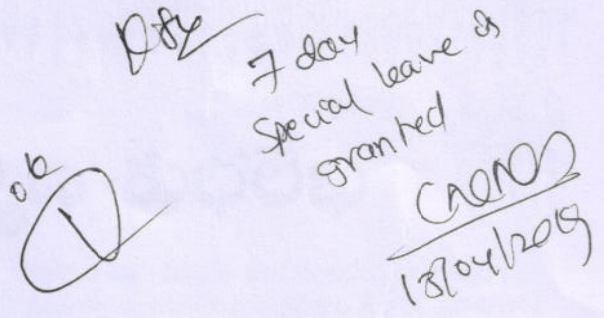 7 day
Special leave is
granted
ok
18/04/2019